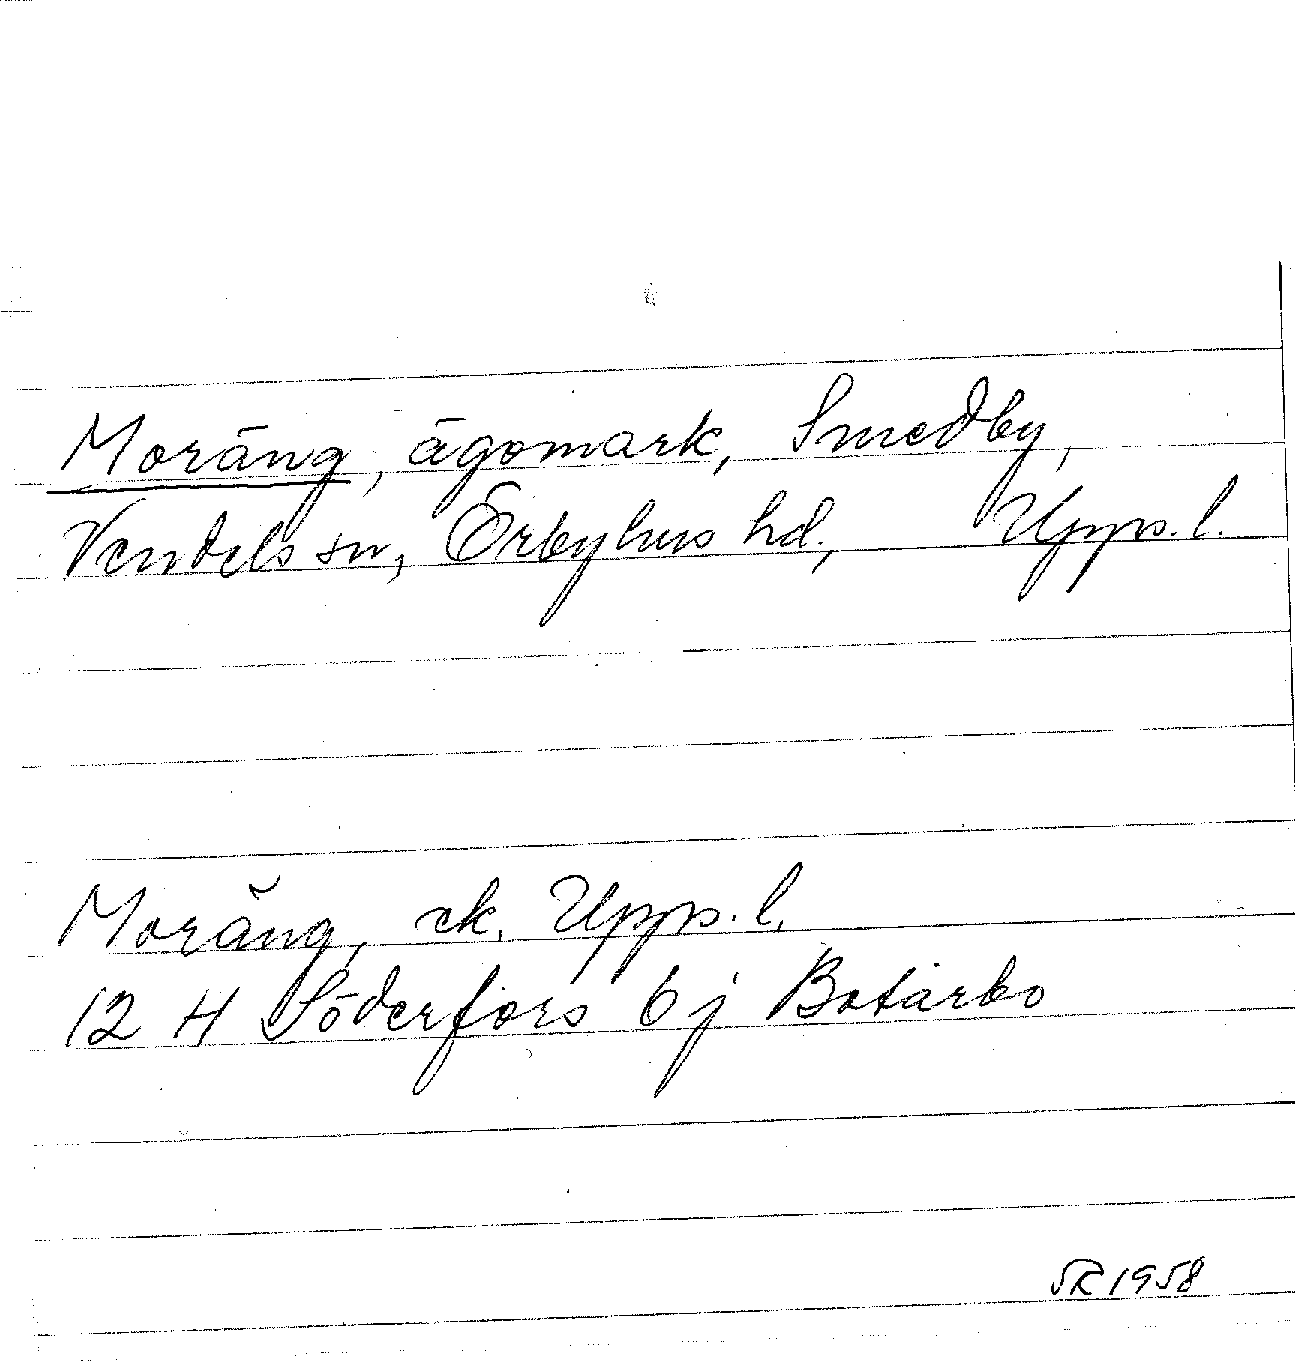 Moräng, ägomark, Smedby,
Vendels sn, Örbyhus hd, Upps. l.
Moräng, ek. Upps. l.
12 H Söderfors 6j Botarbo
SR 1958